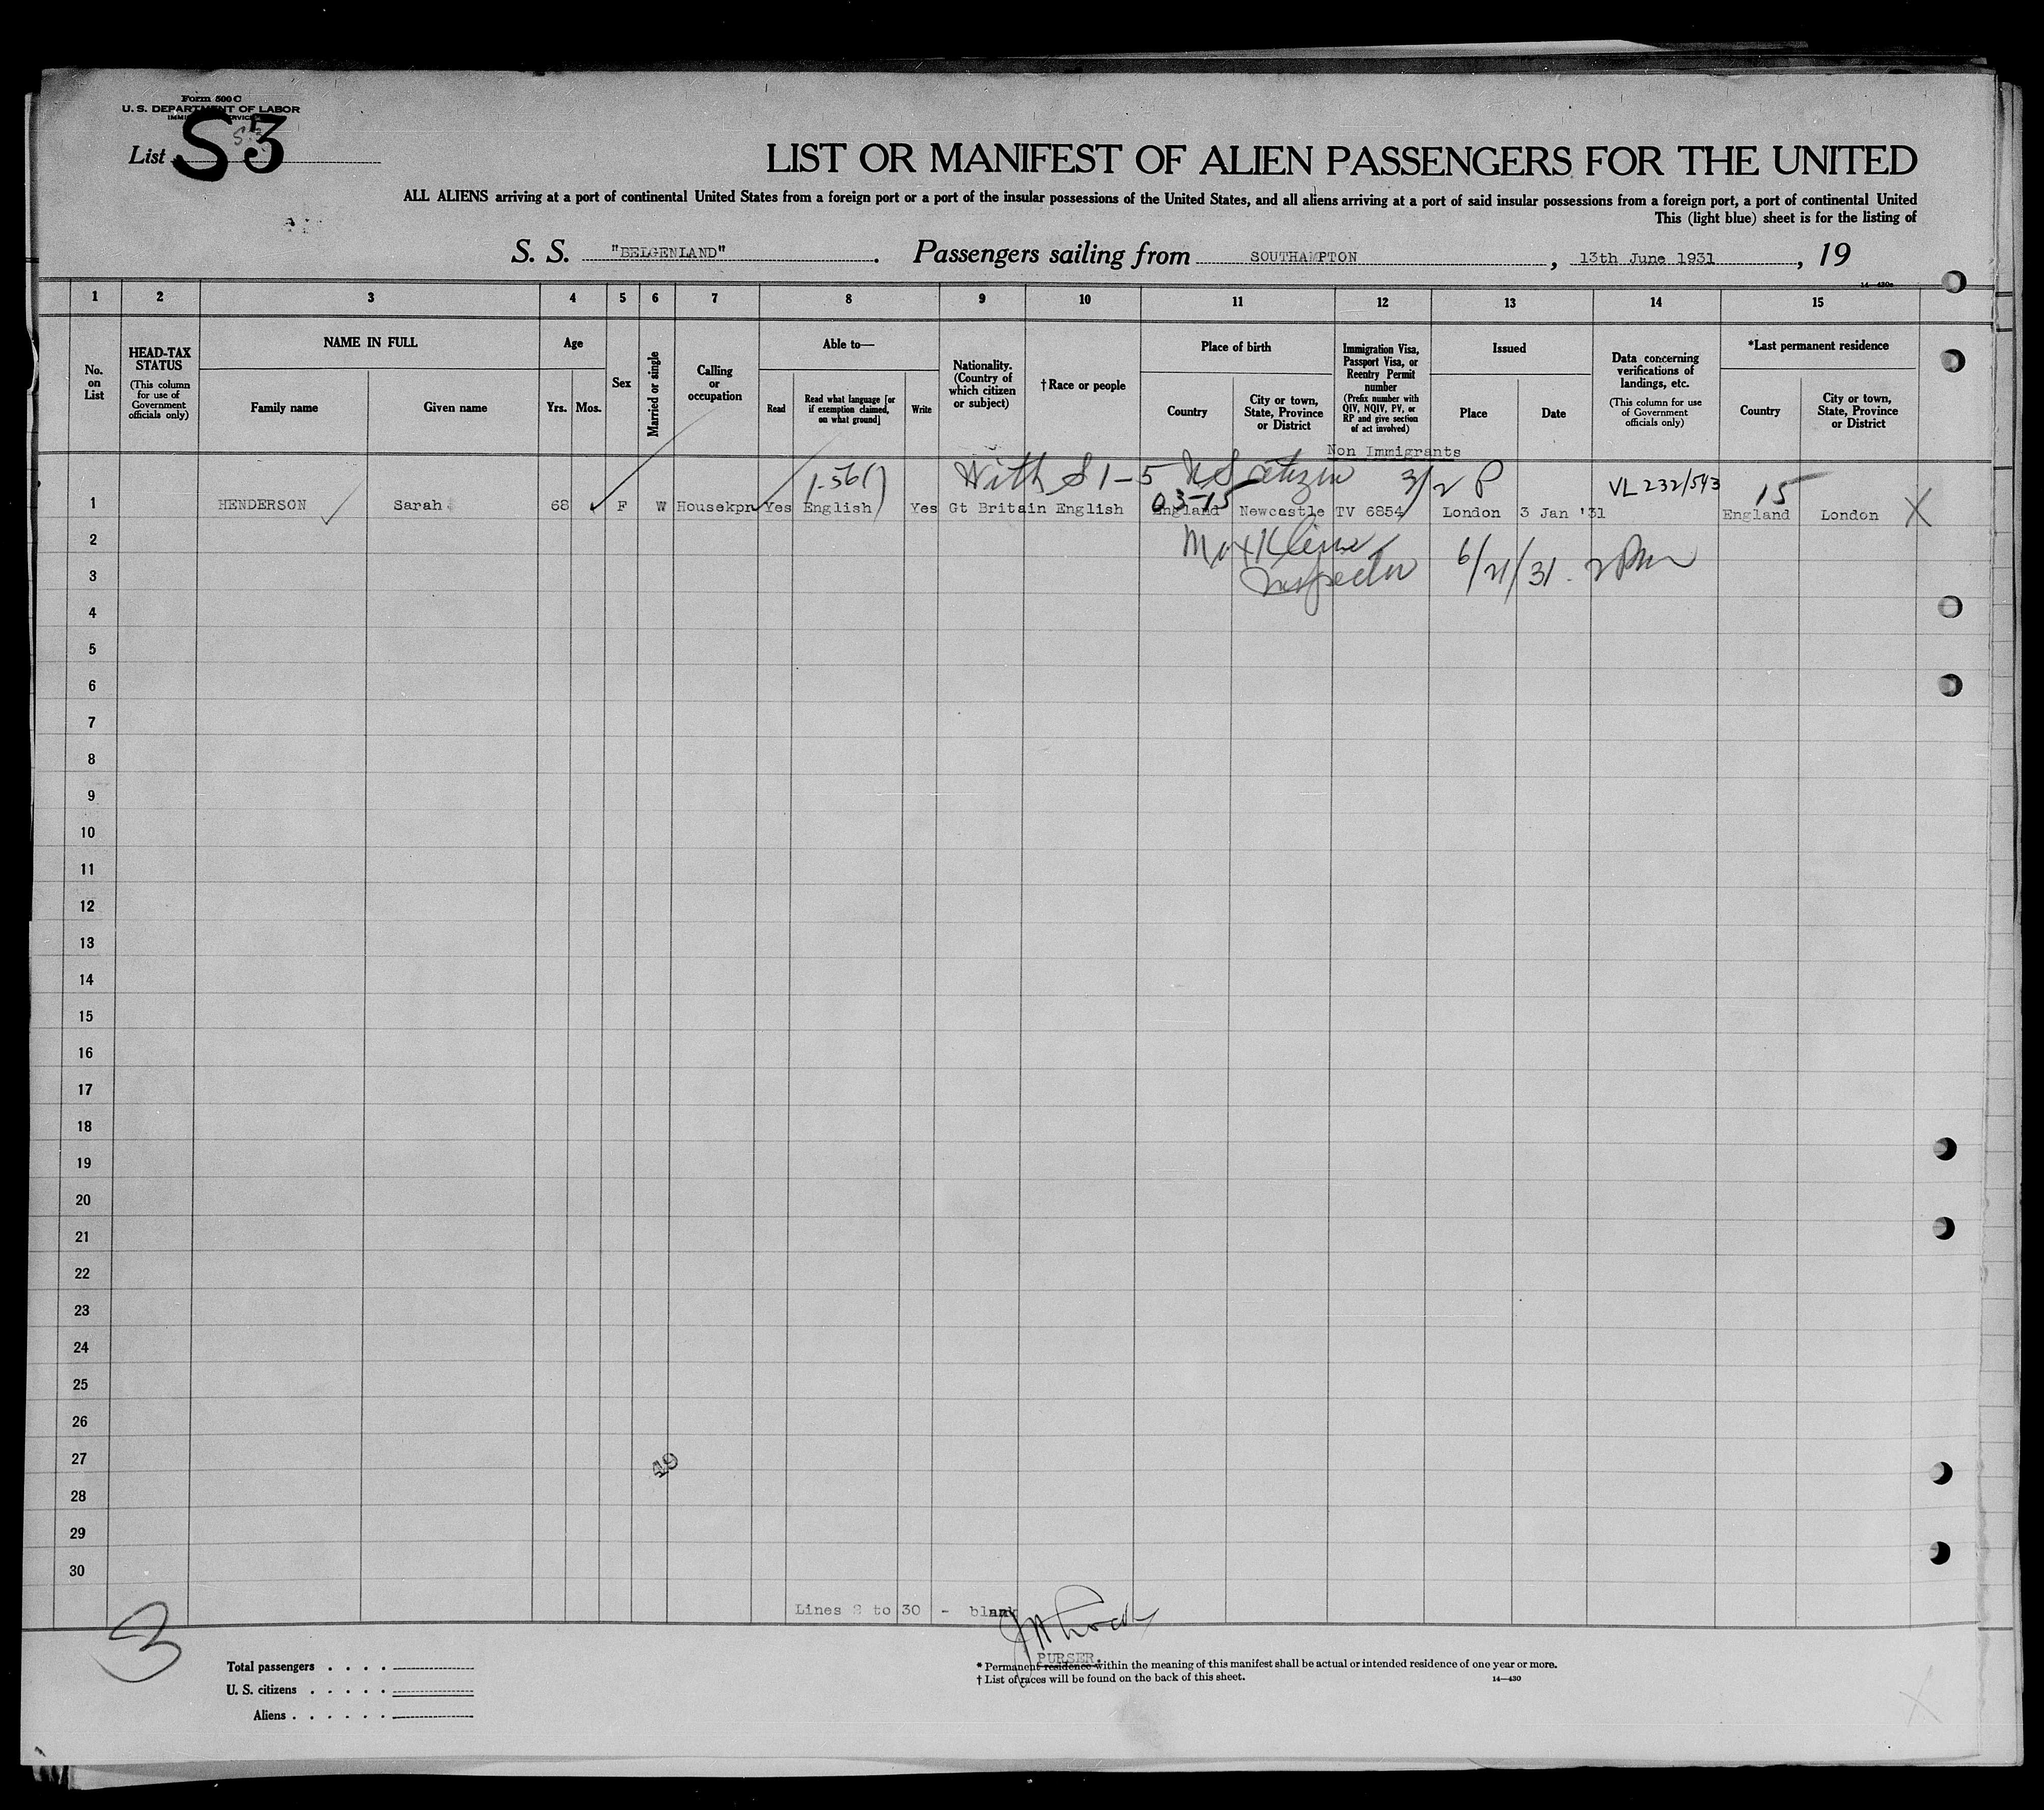 Form 500 C
U. S. DEPARTMENT OF LABOR
List S3
LIST OR MANIFEST OF ALIEN PASSENGERS FOR THE UNITED
ALL ALIENS arriving at a port of continental United States from a foreign port or a port of the insular possessions of the United States, and all aliens arriving at a port of said insular possessions from a foreign port, a port of continental United
This (light blue) sheet is for the listing of
S. S. "BELGENLAND". Passengers sailing from SOUTHAMPTON, 13th June 1931, 19
14—430a
1 2 3 4 5 6 7 8 9 10 11 12 13 14 15
No. on List
HEAD-TAX STATUS (This column for use of Government officials only)
NAME IN FULL
Family name
Given name
Age
Yrs. Mos.
Sex
Married or single
Calling or occupation
Able to—
Read
Read what language [or if exemption claimed, on what ground]
Write
Nationality. (Country of which citizen or subject)
† Race or people
Place of birth
Country
City or town, State, Province or District
Immigration Visa, Passport Visa, or Reentry Permit number (Prefix number with QIV, NQIV, PV, or RP and give section of act involved)
Issued
Place
Date
Data concerning verifications of landings, etc. (This column for use of Government officials only)
*Last permanent residence
Country
City or town, State, Province or District
Non Immigrants
With S 1-5 US citizen 3/2 P VL 232/543 15
03-15
1 HENDERSON Sarah 68 F W Housekpr Yes English Yes Gt Britain English England Newcastle TV 6854 London 3 Jan '31 England London X
2 Max Kline
3 Inspector 6/21/31 2 Pm
4
5
6
7
8
9
10
11
12
13
14
15
16
17
18
19
20
21
22
23
24
25
26
27
49
28
29
30
Lines 2 to 30 - blank
3
PURSER.
Total passengers
U. S. citizens
Aliens
* Permanent residence within the meaning of this manifest shall be actual or intended residence of one year or more.
† List of races will be found on the back of this sheet.
14—430